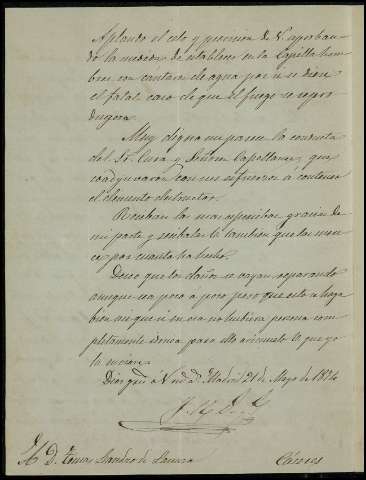 Aplaudo el celo y prevision de V. aproban-
do la medida de establecer en la Capilla hom-
bres con cantaros de agua por si se diese
el fatal caso de que el fuego se repro-
dugera.
Muy digna me parece la conducta
del Sr. Cura y Señores Capellanes, que
coadyuvaron con sus esfuerzos á contener
el elemento destructor.
Reciban las mas expresivas gracias de
mi parte y V. tambien que las mere-
ce por cuanto ha hecho.
Deseo que los daños se vayan reparando
aunque sea poco a poco pero que esto se haga
bien aunque si en esa no hubiera persona com-
pletamente idonea para ello avíseme lo que yo
la enviara.
Dios gue á V. m. a. Madrid 21 de Mayo de 1874
Sr. D. Tomas de
Cáceres